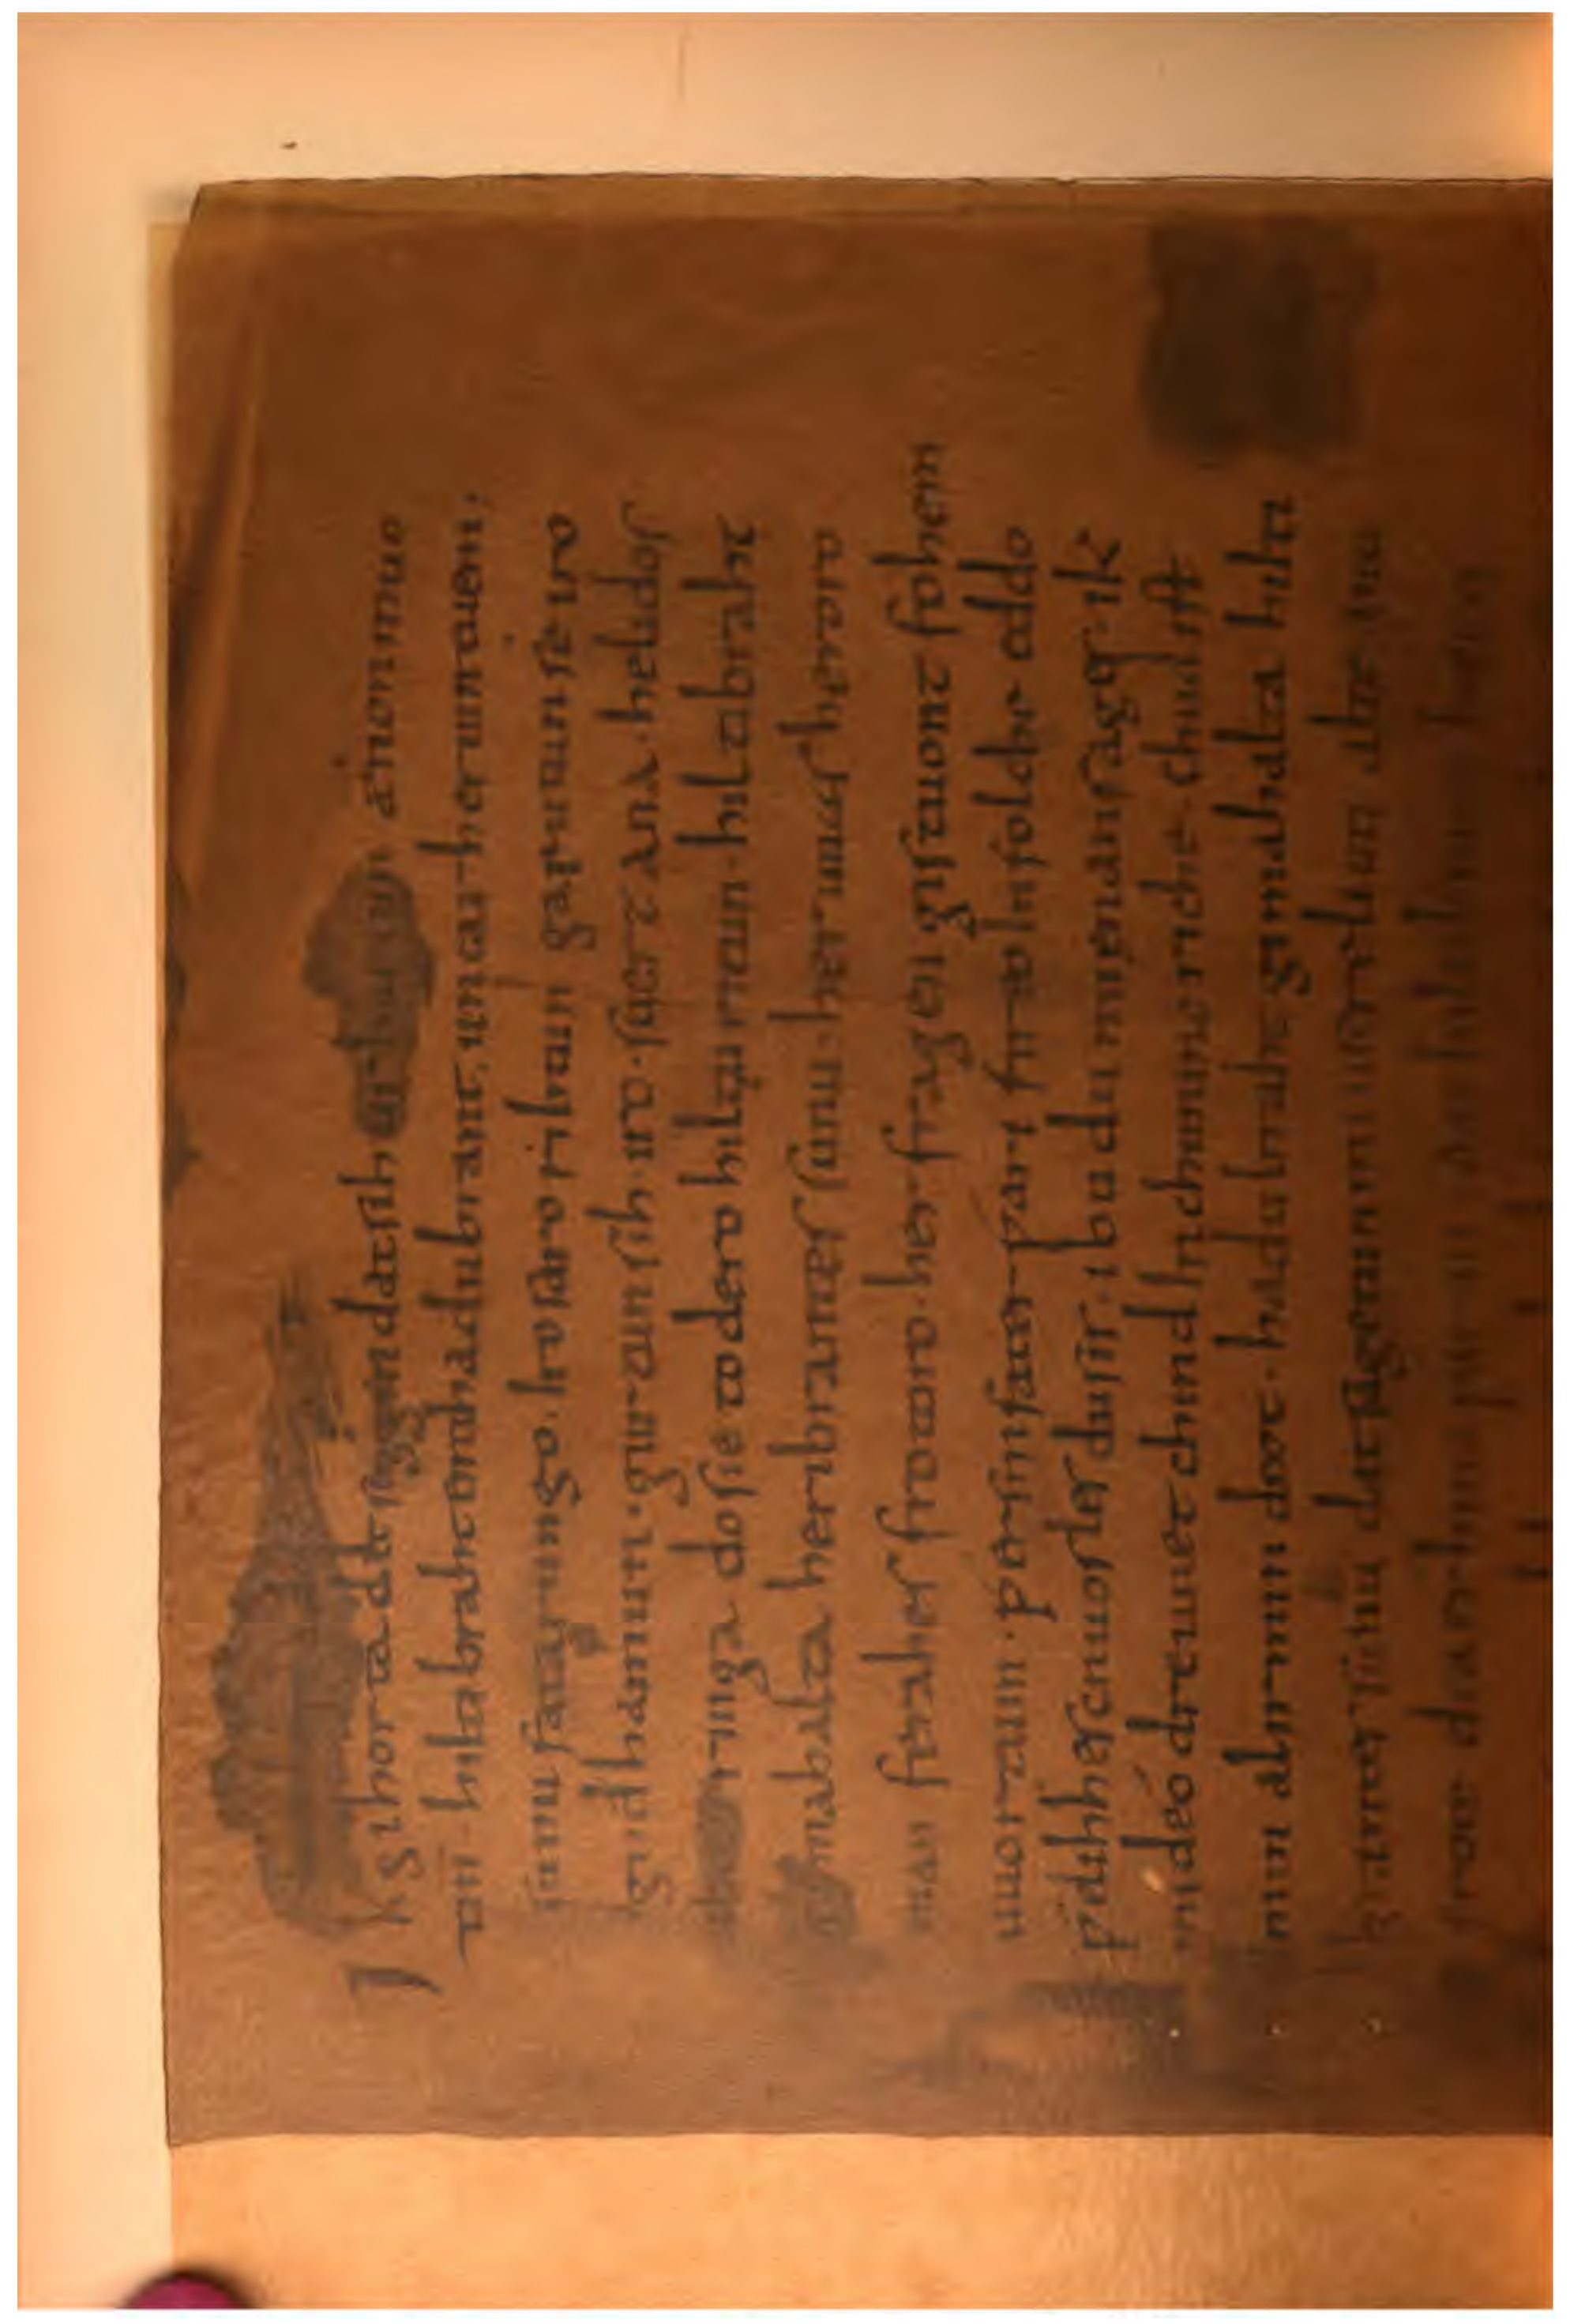 Ik gihorta dat seggen dat sih urhettun ænon muo
tin. hiltibraht enti hadubrant. untar heriun tuem,
sunu fatarungo. iro saro rihtun garutun se iro
gudhamun. gurtun sih. iro. suert ana. helidos
ubar ringa do sie to dero hiltu ritun. hiltibraht
gimahalta heribrantes sunu. her uuas heroro
man ferahes frotoro. her fragen gistuont fohem
uuortum. ƿer sin fater ƿari fireo In folche eddo
ƿelihhes cnuosles du sis. ibu du mi enan sages. ik
mi de odre uuet chind In chunincriche. chud ist
min al irmin deot. hadubraht gimahalta hilti
brantes sunu dat sagetun mi usere liuti alte anti
frote dea erhina ƿarun. dat hiltibrant hætti